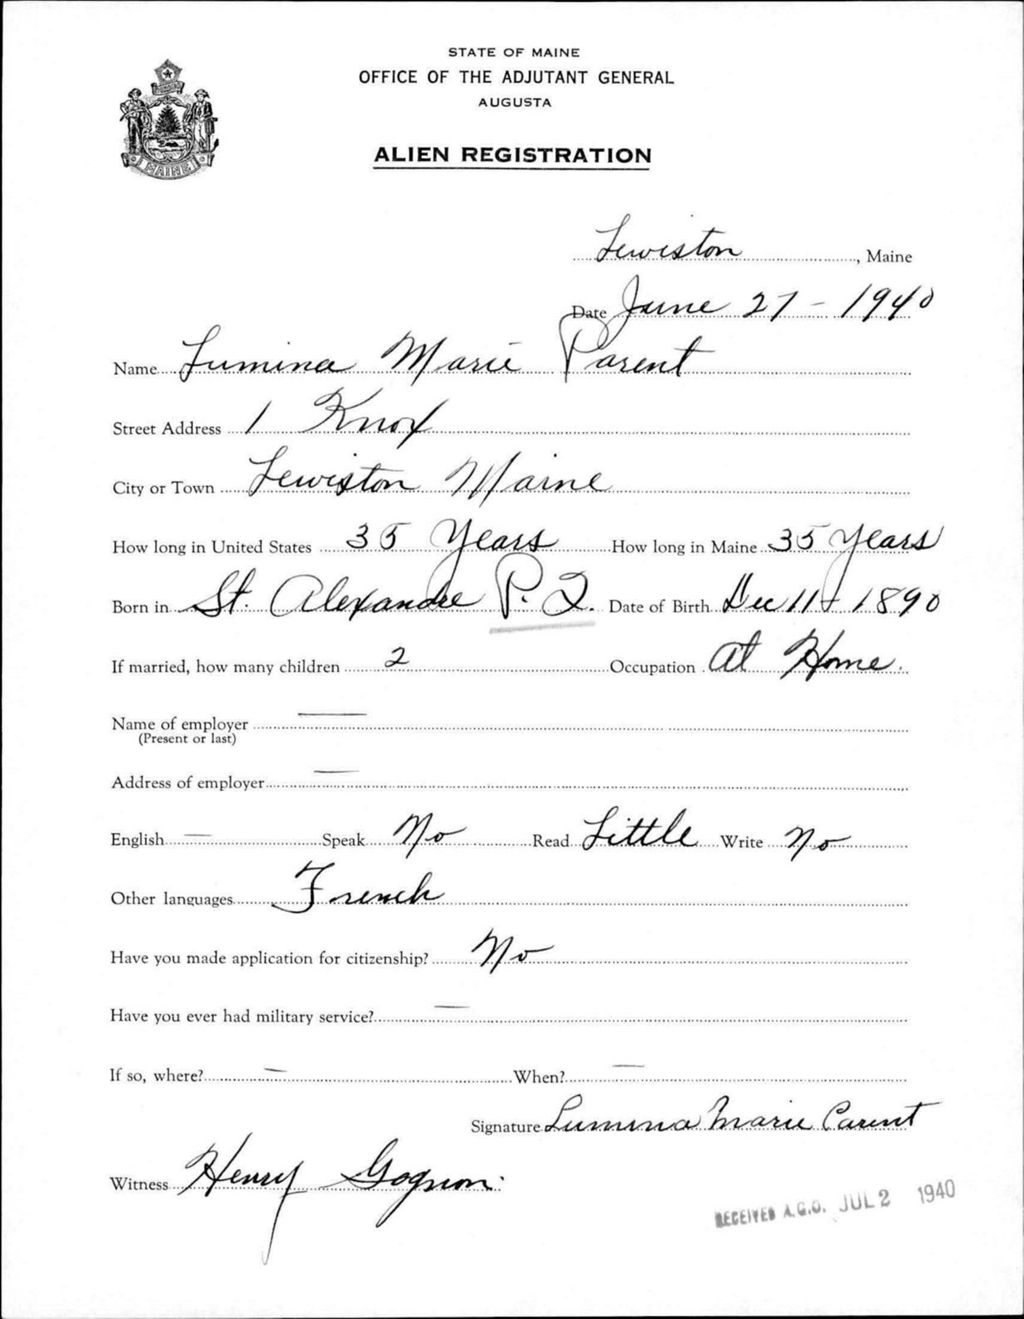 STATE OF MAINE
OFFICE OF THE ADJUTANT GENERAL
AUGUSTA
ALIEN REGISTRATION
MAINE
Lewiston, Maine
Date June 27 - 1940
Name Lumina Marie Parent
Street Address 1 Knox
City or Town Lewiston Maine
How long in United States 35 Years How long in Maine 35 Years
Born in St. Alexandre P. Q. Date of Birth Dec 11 1890
If married, how many children 2 Occupation At Home.
Name of employer —
(Present or last)
Address of employer —
English — Speak No Read Little Write No
Other languages French
Have you made application for citizenship? No
Have you ever had military service? —
If so, where? — When? —
Signature Lumina Marie Parent
Witness Henry Gognon.
RECEIVED A.G.O. JUL 2 1940